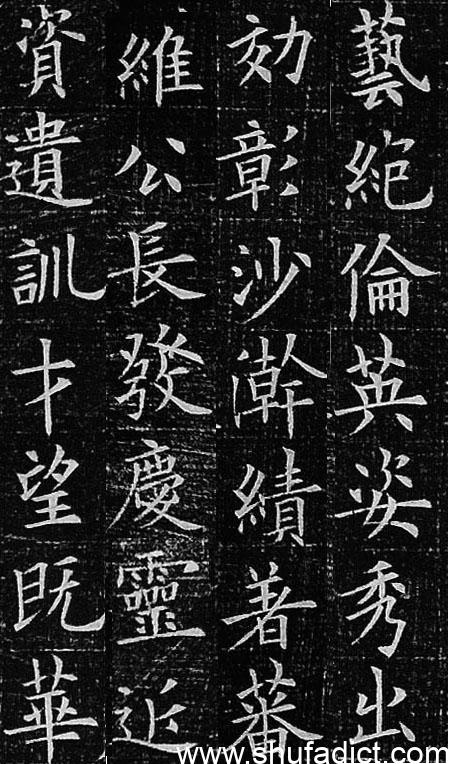 藝絕倫英姿秀出
効彰沙漧績著蕃
維公長發慶靈近
資遺訓才望既華
www.shufadict.com